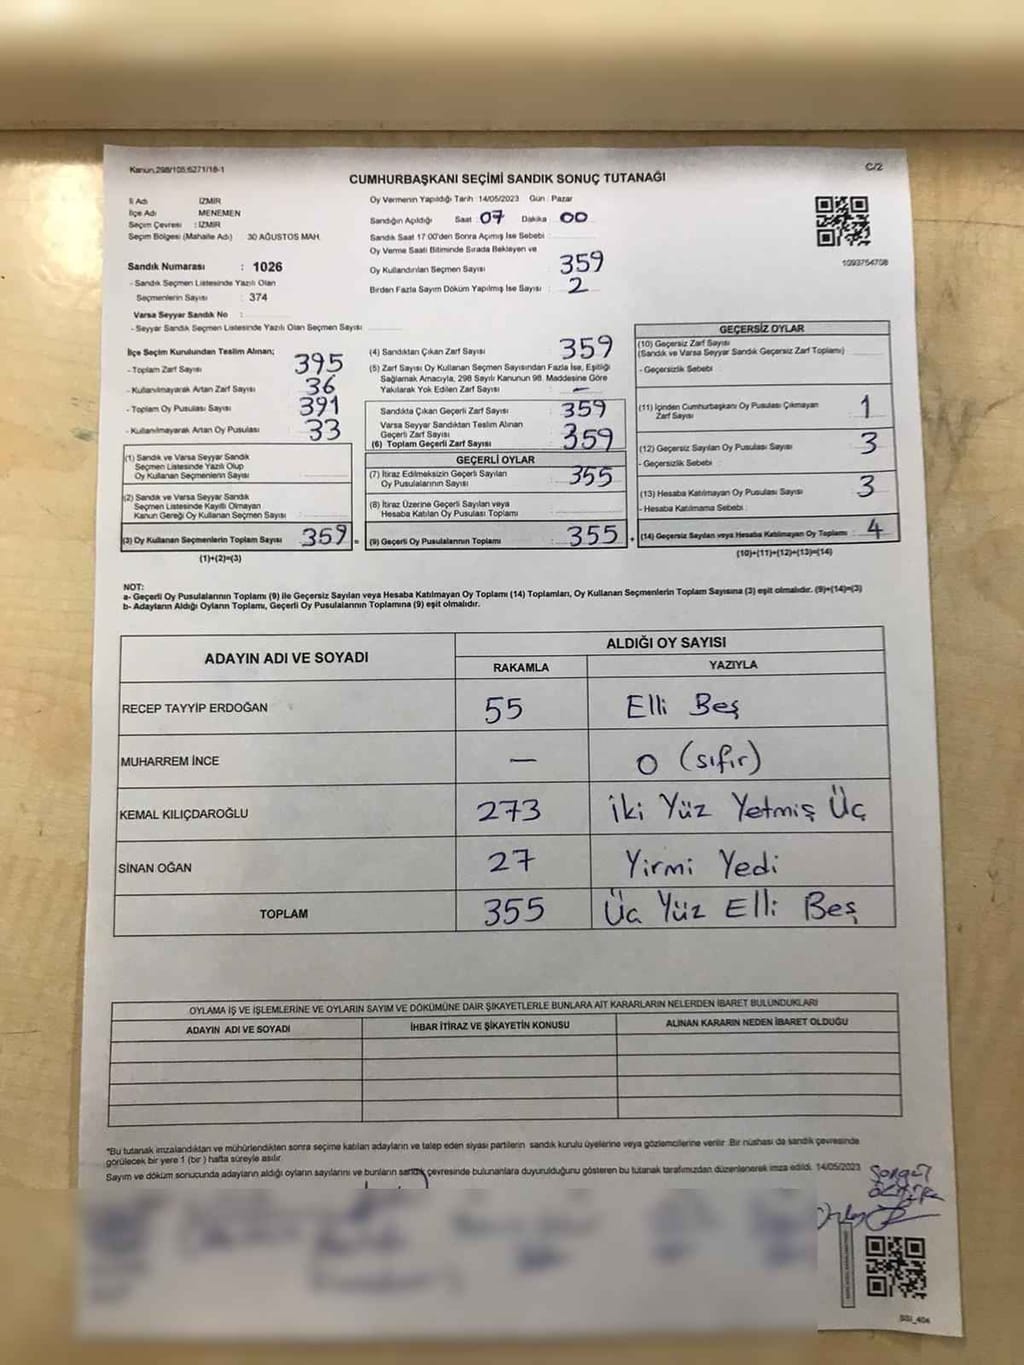 Kanun:298/105;6271/18-1
C/2
CUMHURBAŞKANI SEÇİMİ SANDIK SONUÇ TUTANAĞI
İl Adı İZMİR
İlçe Adı MENEMEN
Seçim Çevresi : İZMİR
Seçim Bölgesi (Mahalle Adı) 30 AĞUSTOS MAH.
Sandık Numarası : 1026
- Sandık Seçmen Listesinde Yazılı Olan
Seçmenlerin Sayısı : 374
Varsa Seyyar Sandık No :
- Seyyar Sandık Seçmen Listesinde Yazılı Olan Seçmen Sayısı
Oy Vermenin Yapıldığı Tarih 14/05/2023 Gün : Pazar
Sandığın Açıldığı Saat 07 Dakika 00
Sandık Saat 17:00'den Sonra Açılmış İse Sebebi :
Oy Verme Saati Bitiminde Sırada Bekleyen ve
Oy Kullandırılan Seçmen Sayısı 359
Birden Fazla Sayım Döküm Yapılmış İse Sayısı : 2
1093754708
İlçe Seçim Kurulundan Teslim Alınan;
- Toplam Zarf Sayısı 395
- Kullanılmayarak Artan Zarf Sayısı 36
- Toplam Oy Pusulası Sayısı 391
- Kullanılmayarak Artan Oy Pusulası 33
(1) Sandık ve Varsa Seyyar Sandık
Seçmen Listesinde Yazılı Olup
Oy Kullanan Seçmenlerin Sayısı
(2) Sandık ve Varsa Seyyar Sandık
Seçmen Listesinde Kayıtlı Olmayan
Kanun Gereği Oy Kullanan Seçmen Sayısı :
(3) Oy Kullanan Seçmenlerin Toplam Sayısı 359 =
(1)+(2)=(3)
(4) Sandıktan Çıkan Zarf Sayısı 359
(5) Zarf Sayısı Oy Kullanan Seçmen Sayısından Fazla İse, Eşitliği
Sağlamak Amacıyla, 298 Sayılı Kanunun 98. Maddesine Göre
Yakılarak Yok Edilen Zarf Sayısı : —
Sandıkta Çıkan Geçerli Zarf Sayısı 359
Varsa Seyyar Sandıktan Teslim Alınan
Geçerli Zarf Sayısı
(6) Toplam Geçerli Zarf Sayısı 359
GEÇERLİ OYLAR
(7) İtiraz Edilmeksizin Geçerli Sayılan
Oy Pusulalarının Sayısı 355
(8) İtiraz Üzerine Geçerli Sayılan veya
Hesaba Katılan Oy Pusulası Toplamı
(9) Geçerli Oy Pusulalarının Toplamı 355 +
GEÇERSİZ OYLAR
(10) Geçersiz Zarf Sayısı
(Sandık ve Varsa Seyyar Sandık Geçersiz Zarf Toplamı)
- Geçersizlik Sebebi
(11) İçinden Cumhurbaşkanı Oy Pusulası Çıkmayan
Zarf Sayısı 1
(12) Geçersiz Sayılan Oy Pusulası Sayısı 3
- Geçersizlik Sebebi
(13) Hesaba Katılmayan Oy Pusulası Sayısı 3
- Hesaba Katılmama Sebebi
(14) Geçersiz Sayılan veya Hesaba Katılmayan Oy Toplamı : 4
(10)+(11)+(12)+(13)=(14)
NOT:
a- Geçerli Oy Pusulalarının Toplamı (9) ile Geçersiz Sayılan veya Hesaba Katılmayan Oy Toplamı (14) Toplamları, Oy Kullanan Seçmenlerin Toplam Sayısına (3) eşit olmalıdır. (9)+(14)=(3)
b- Adayların Aldığı Oyların Toplamı, Geçerli Oy Pusulalarının Toplamına (9) eşit olmalıdır.
ADAYIN ADI VE SOYADI ALDIĞI OY SAYISI
RAKAMLA YAZIYLA
RECEP TAYYİP ERDOĞAN 55 Elli Beş
MUHARREM İNCE — 0 (sıfır)
KEMAL KILIÇDAROĞLU 273 İki Yüz Yetmiş Üç
SİNAN OĞAN 27 Yirmi Yedi
TOPLAM 355 Üç Yüz Elli Beş
OYLAMA İŞ VE İŞLEMLERİNE VE OYLARIN SAYIM VE DÖKÜMÜNE DAİR ŞİKAYETLERLE BUNLARA AİT KARARLARIN NELERDEN İBARET BULUNDUKLARI
ADAYIN ADI VE SOYADI İHBAR İTİRAZ VE ŞİKAYETİN KONUSU ALINAN KARARIN NEDEN İBARET OLDUĞU
*Bu tutanak imzalandıktan ve mühürlendikten sonra seçime katılan adayların ve talep eden siyasi partilerin sandık kurulu üyelerine veya gözlemcilerine verilir. Bir nüshası da sandık çevresinde
görülecek bir yere 1 (bir) hafta süreyle asılır.
Sayım ve döküm sonucunda adayların aldığı oyların sayılarını ve bunların sandık çevresinde bulunanlara duyurulduğunu gösteren bu tutanak tarafımızdan düzenlenerek imza edildi. 14/05/2023
Songül